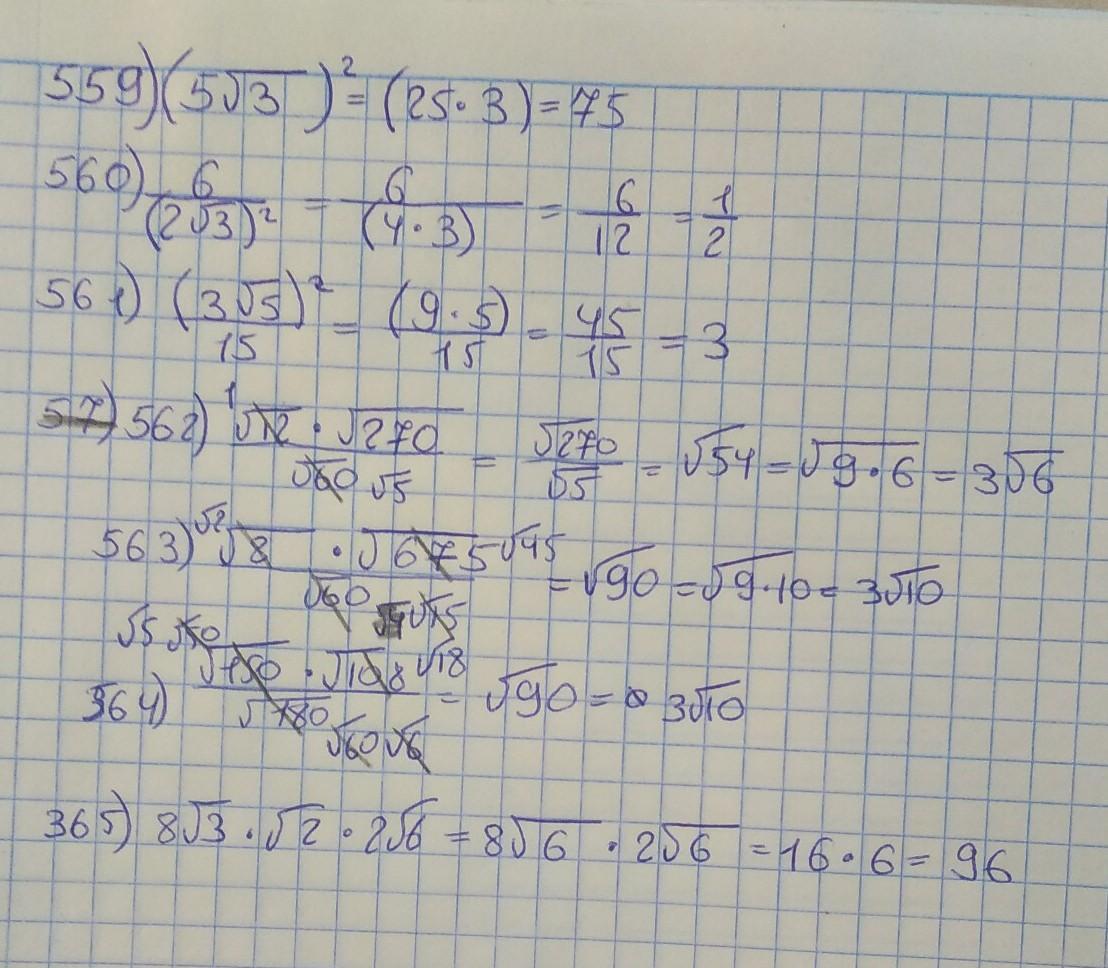 559) (5√3)² = (25·3) = 75
560) 6/(2√3)² = 6/(4·3) = 6/12 = 1/2
561) (3√5)²/15 = (9·5)/15 = 45/15 = 3
57) 562) 1 √12 · √270 / √60 √5 = √270/√5 = √54 = √9·6 = 3√6
563) √2 √8 · √675 √45 / √60 √15 = √90 = √9·10 = 3√10
√5 √50
364) √150 · √108 √18 / √180 √60 √6 = √90 = 3√10
365) 8√3 · √2 · 2√6 = 8√6 · 2√6 = 16·6 = 96